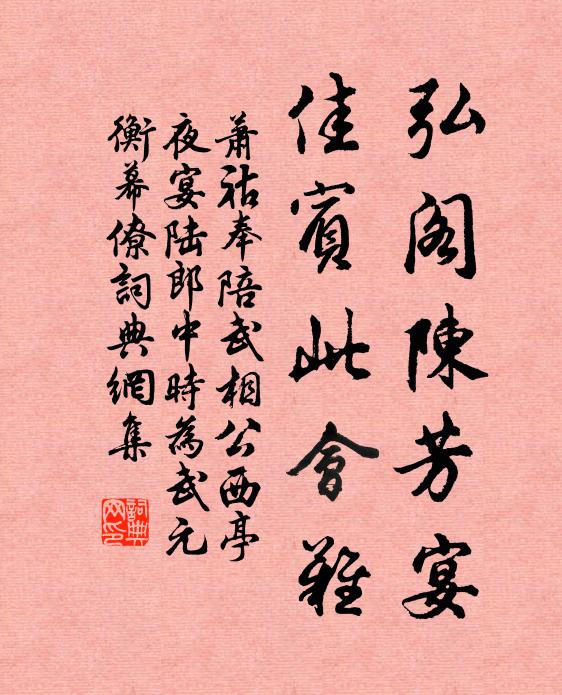 弘阁陳芳宴
佳賓此會難
蕭祜奉陪武相公西亭
夜宴陆郎中時為武元
衡幕僚詞典網集
詞典
网印